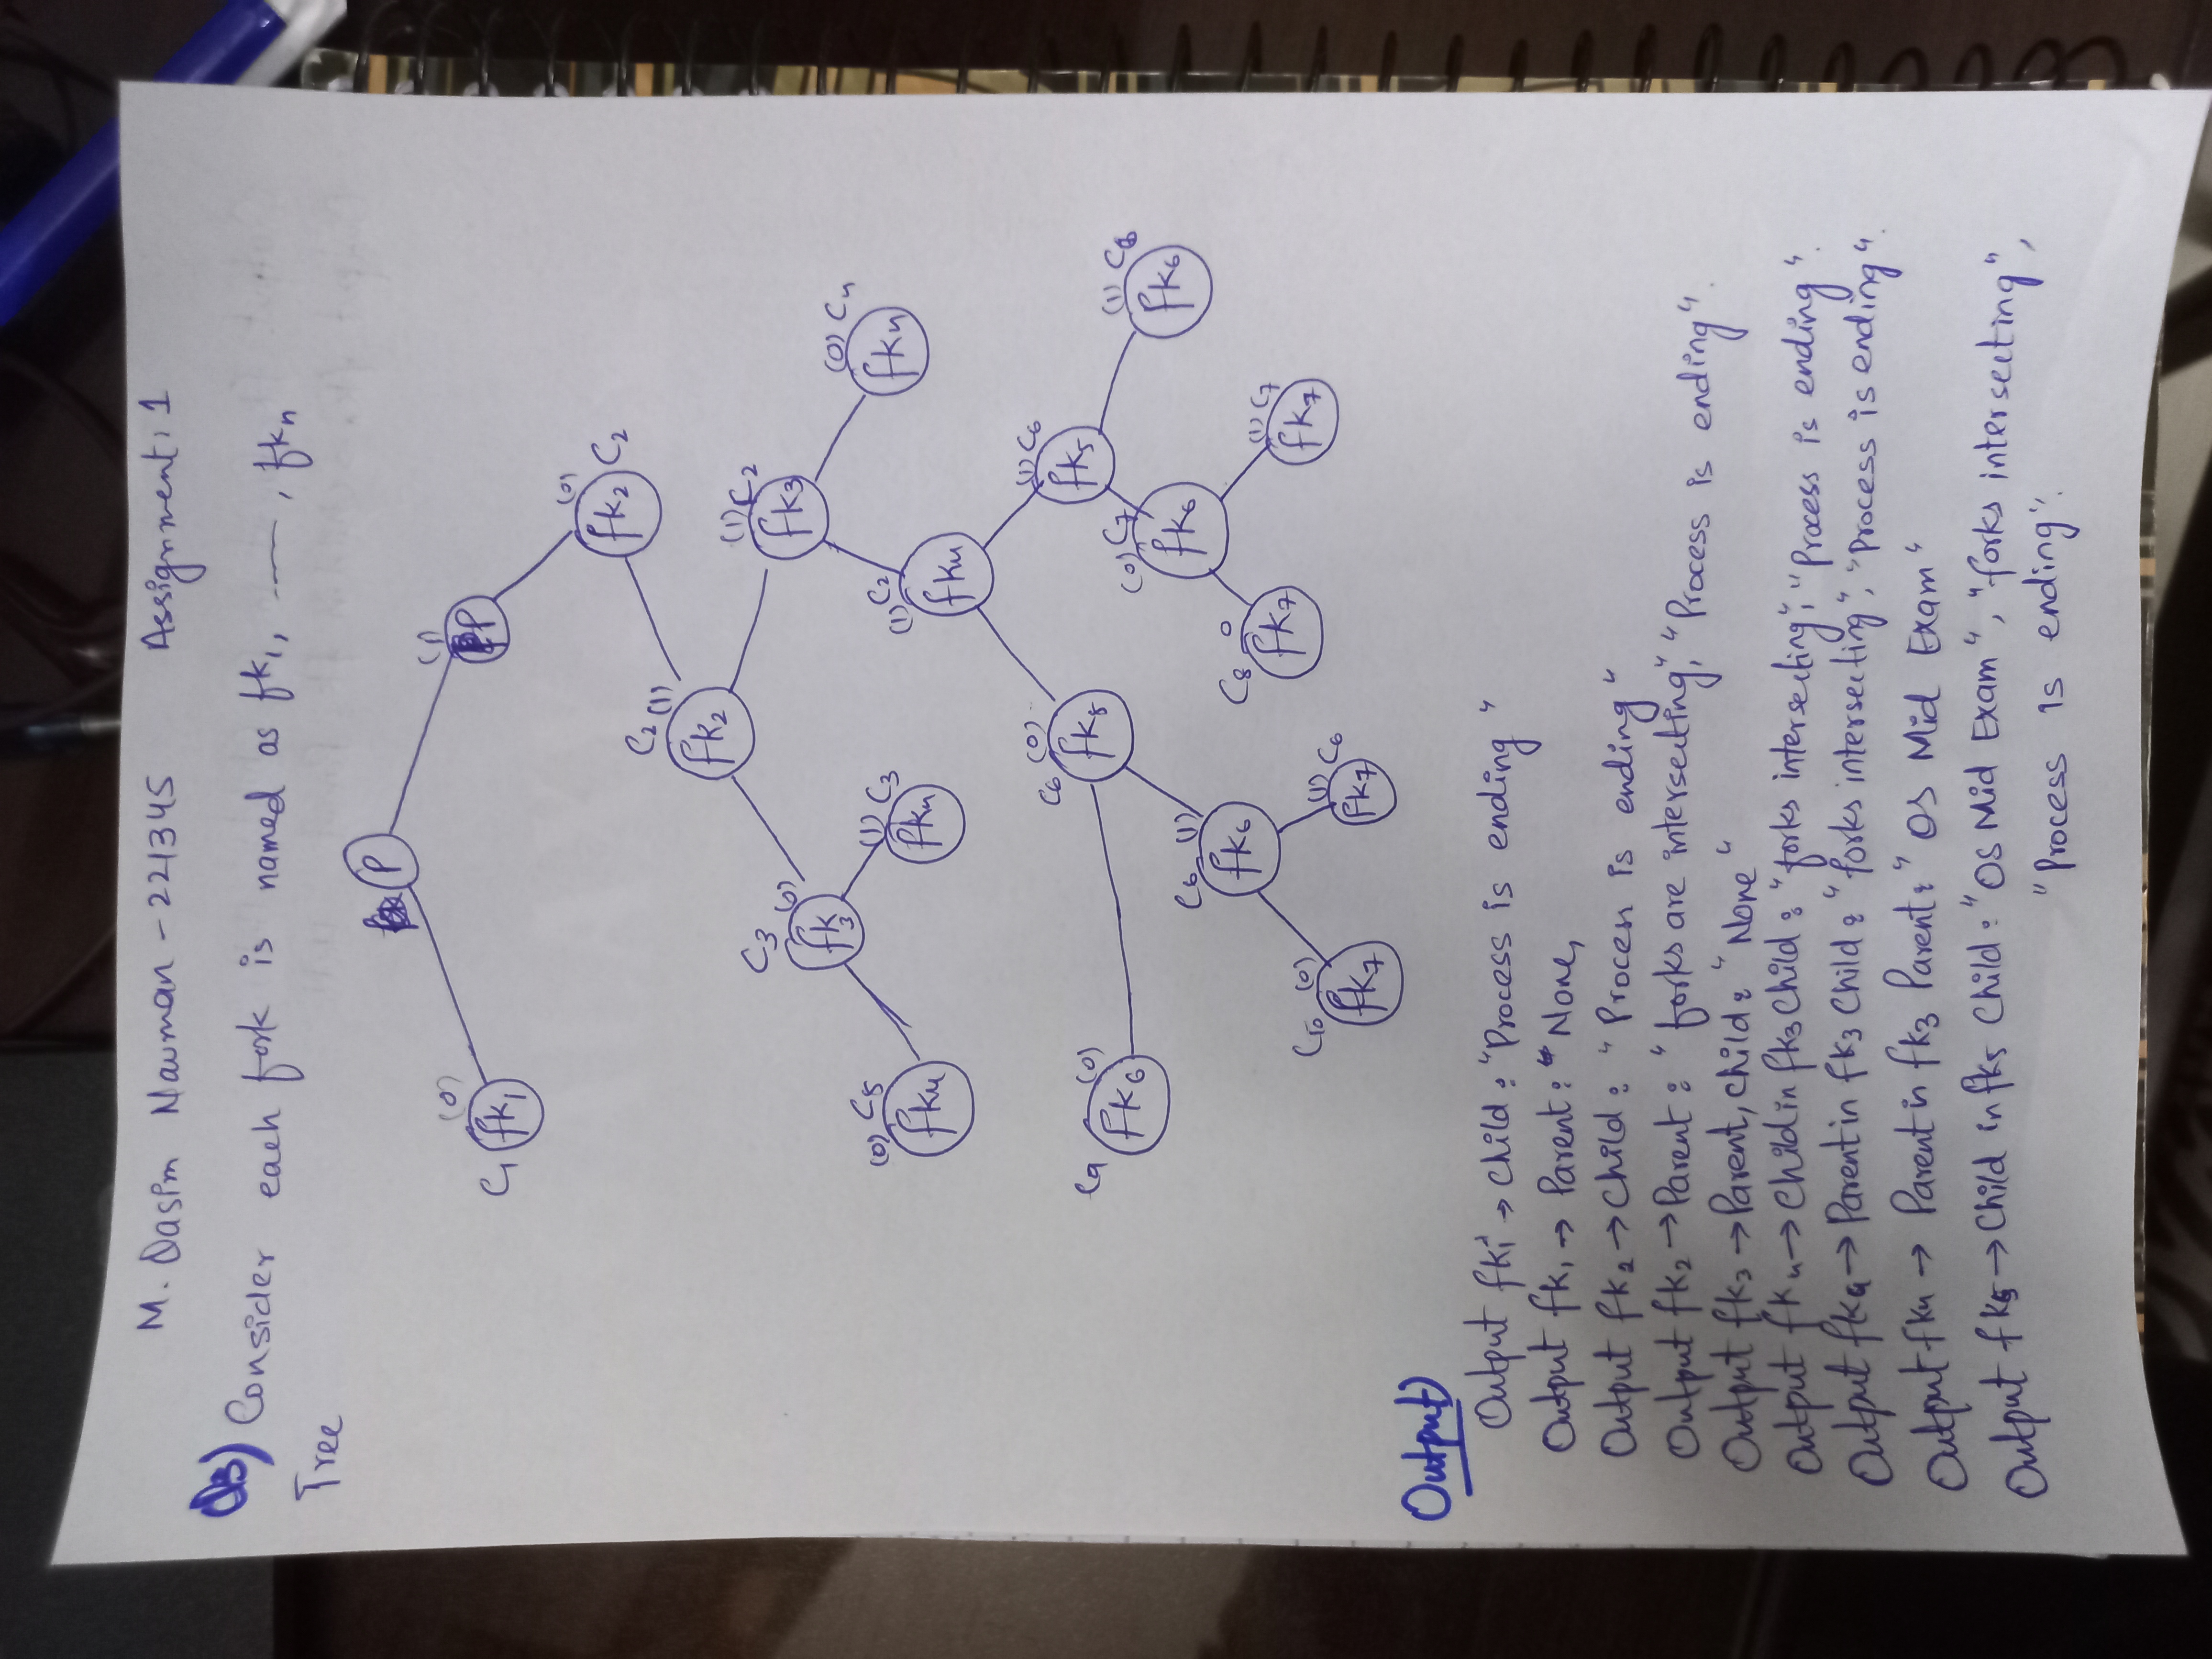 M. Qasim Nauman - 221345 Assignment: 1
Q3) Consider each fork is named as fk1, ——, fkn
Tree
P
(0)
C1 fk1
(1)
P
(0)
fk2 C2
C2 (1)
fk2
(1) C2
fk3
C3 (0)
fk3
(0) C4
fk4
(0) C5
fk4
(1) C3
fk4
(1) C2
fk4
C6 (0)
fk5
(1) C6
fk5
C9 (0)
fk6
(0) C7
fk6
(1) C6
fk6
C6 (1)
fk6
C8 0
fk7
(1) C7
fk7
C10 (0)
fk7
(1) C6
fk7
Output)
Output fk1 → Child : "Process is ending"
Output fk1 → Parent : None,
Output fk2 → Child : "Process is ending"
Output fk2 → Parent : "forks are intersecting", "Process is ending".
Output fk3 → Parent, Child : "None"
Output fk4 → Child in fk3 Child : "forks intersecting", "Process is ending".
Output fk4 → Parent in fk3 Child : "forks intersecting", "Process is ending".
Output fk4 → Parent in fk3 Parent : "OS Mid Exam"
Output fk6 → Child in fk5 Child : "OS Mid Exam", "forks intersecting",
"Process is ending".